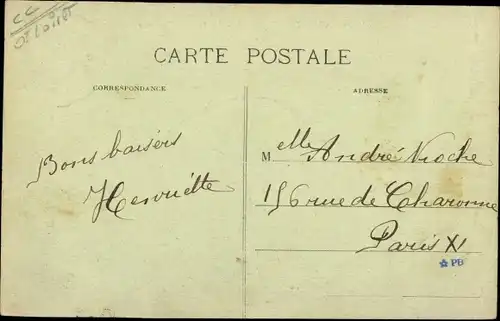 CARTE POSTALE
CORRESPONDANCE
ADRESSE
Bons baisers
Henriette
Melle André
156 rue de Charonne
Paris XI
PB